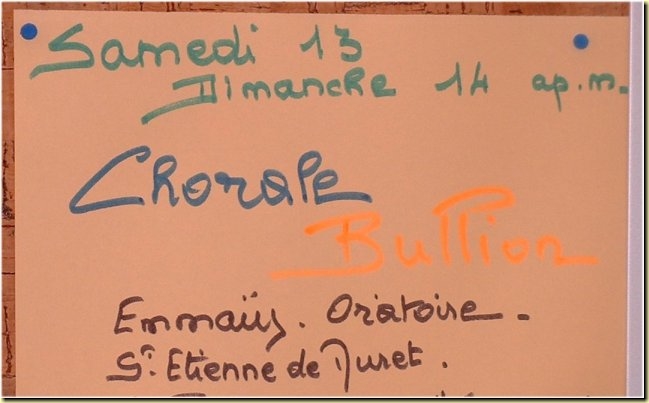 Samedi 13
Dimanche 14 ap.m.
Chorale
Bullion
Emmaüs. Oratoire.
St Etienne de Muret.